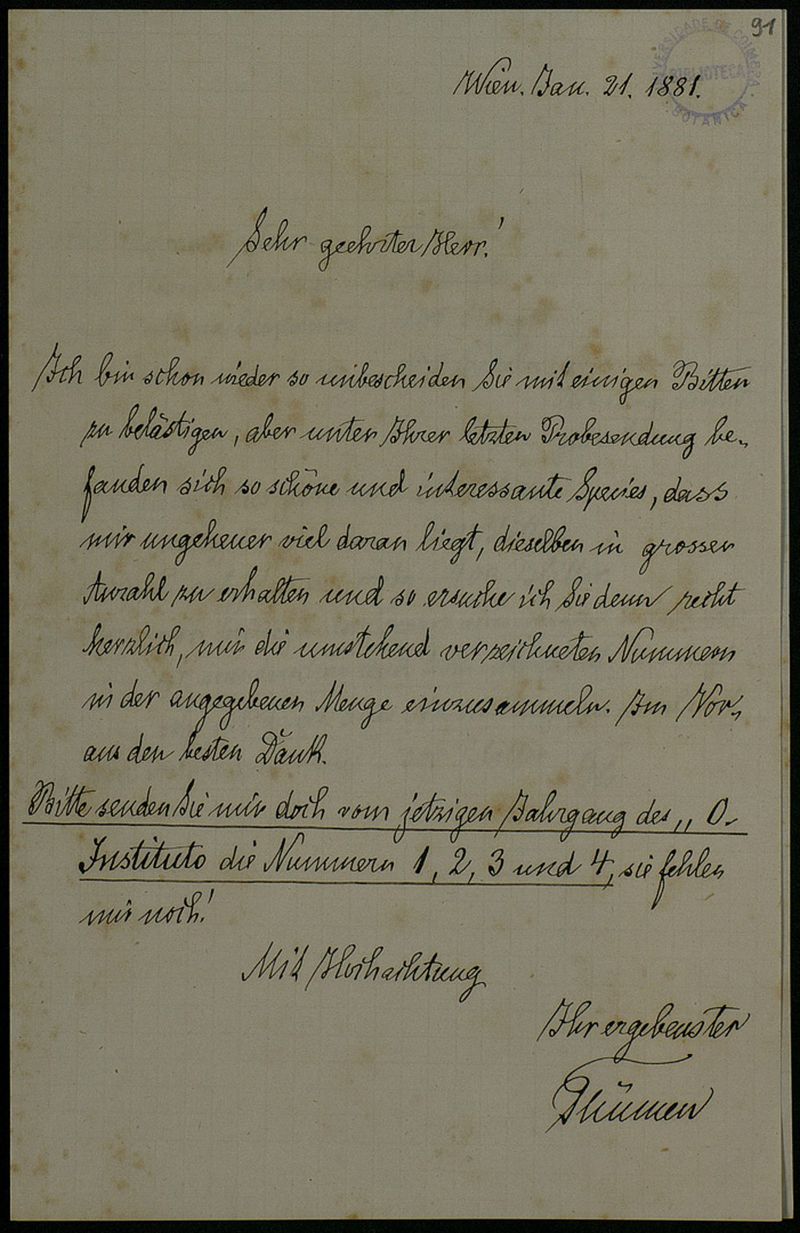 91
UNIVERSIDADE DE COIMBRA
BIBLIOTECA
BOTANICA
Wien. Jan. 21. 1881.
Sehr geehrter Herr!
Ich bin schon wieder so unbescheiden Sie mit einigen Bitten
zu belästigen, aber unter Ihrer letzten Probesendung be-
fanden sich so schöne und interessante Species, dass
mir ungeheuer viel daran liegt, dieselben in grosser
Anzahl zu erhalten und so ersuche ich Sie denn recht
herzlich, mir die umstehend verzeichneten Nummern
in der angegebenen Menge einzusammeln. Im Vor-
aus den besten Dank.
Bitte senden Sie mir doch vom jetzigen Jahrgang des „ O-
Instituto die Nummern 1, 2, 3 und 4, sie fehlen
mir noch!
Mit Hochachtung
Ihr ergebenster
Thümen